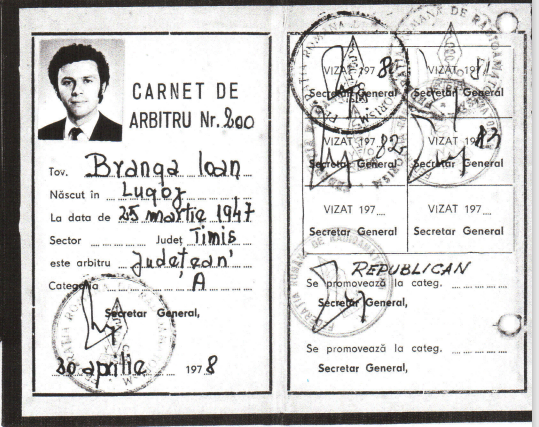 CARNET DE
ARBITRU Nr. 200
Tov. Branga Ioan
Născut în Lugoj
La data de 25 martie 1947
Sector Județ Timis
este arbitru Județean
Categoria A
Secretar General,
30 aprilie 1978
VIZAT 197
Secretar General
VIZAT 197 81
Secretar General,
82
Secretar General
83
Secretar General,
VIZAT 197
Secretar General
VIZAT 197
Secretar General,
REPUBLICAN
Se promovează la categ.
Secretar General,
Se promovează la categ.
Secretar General,